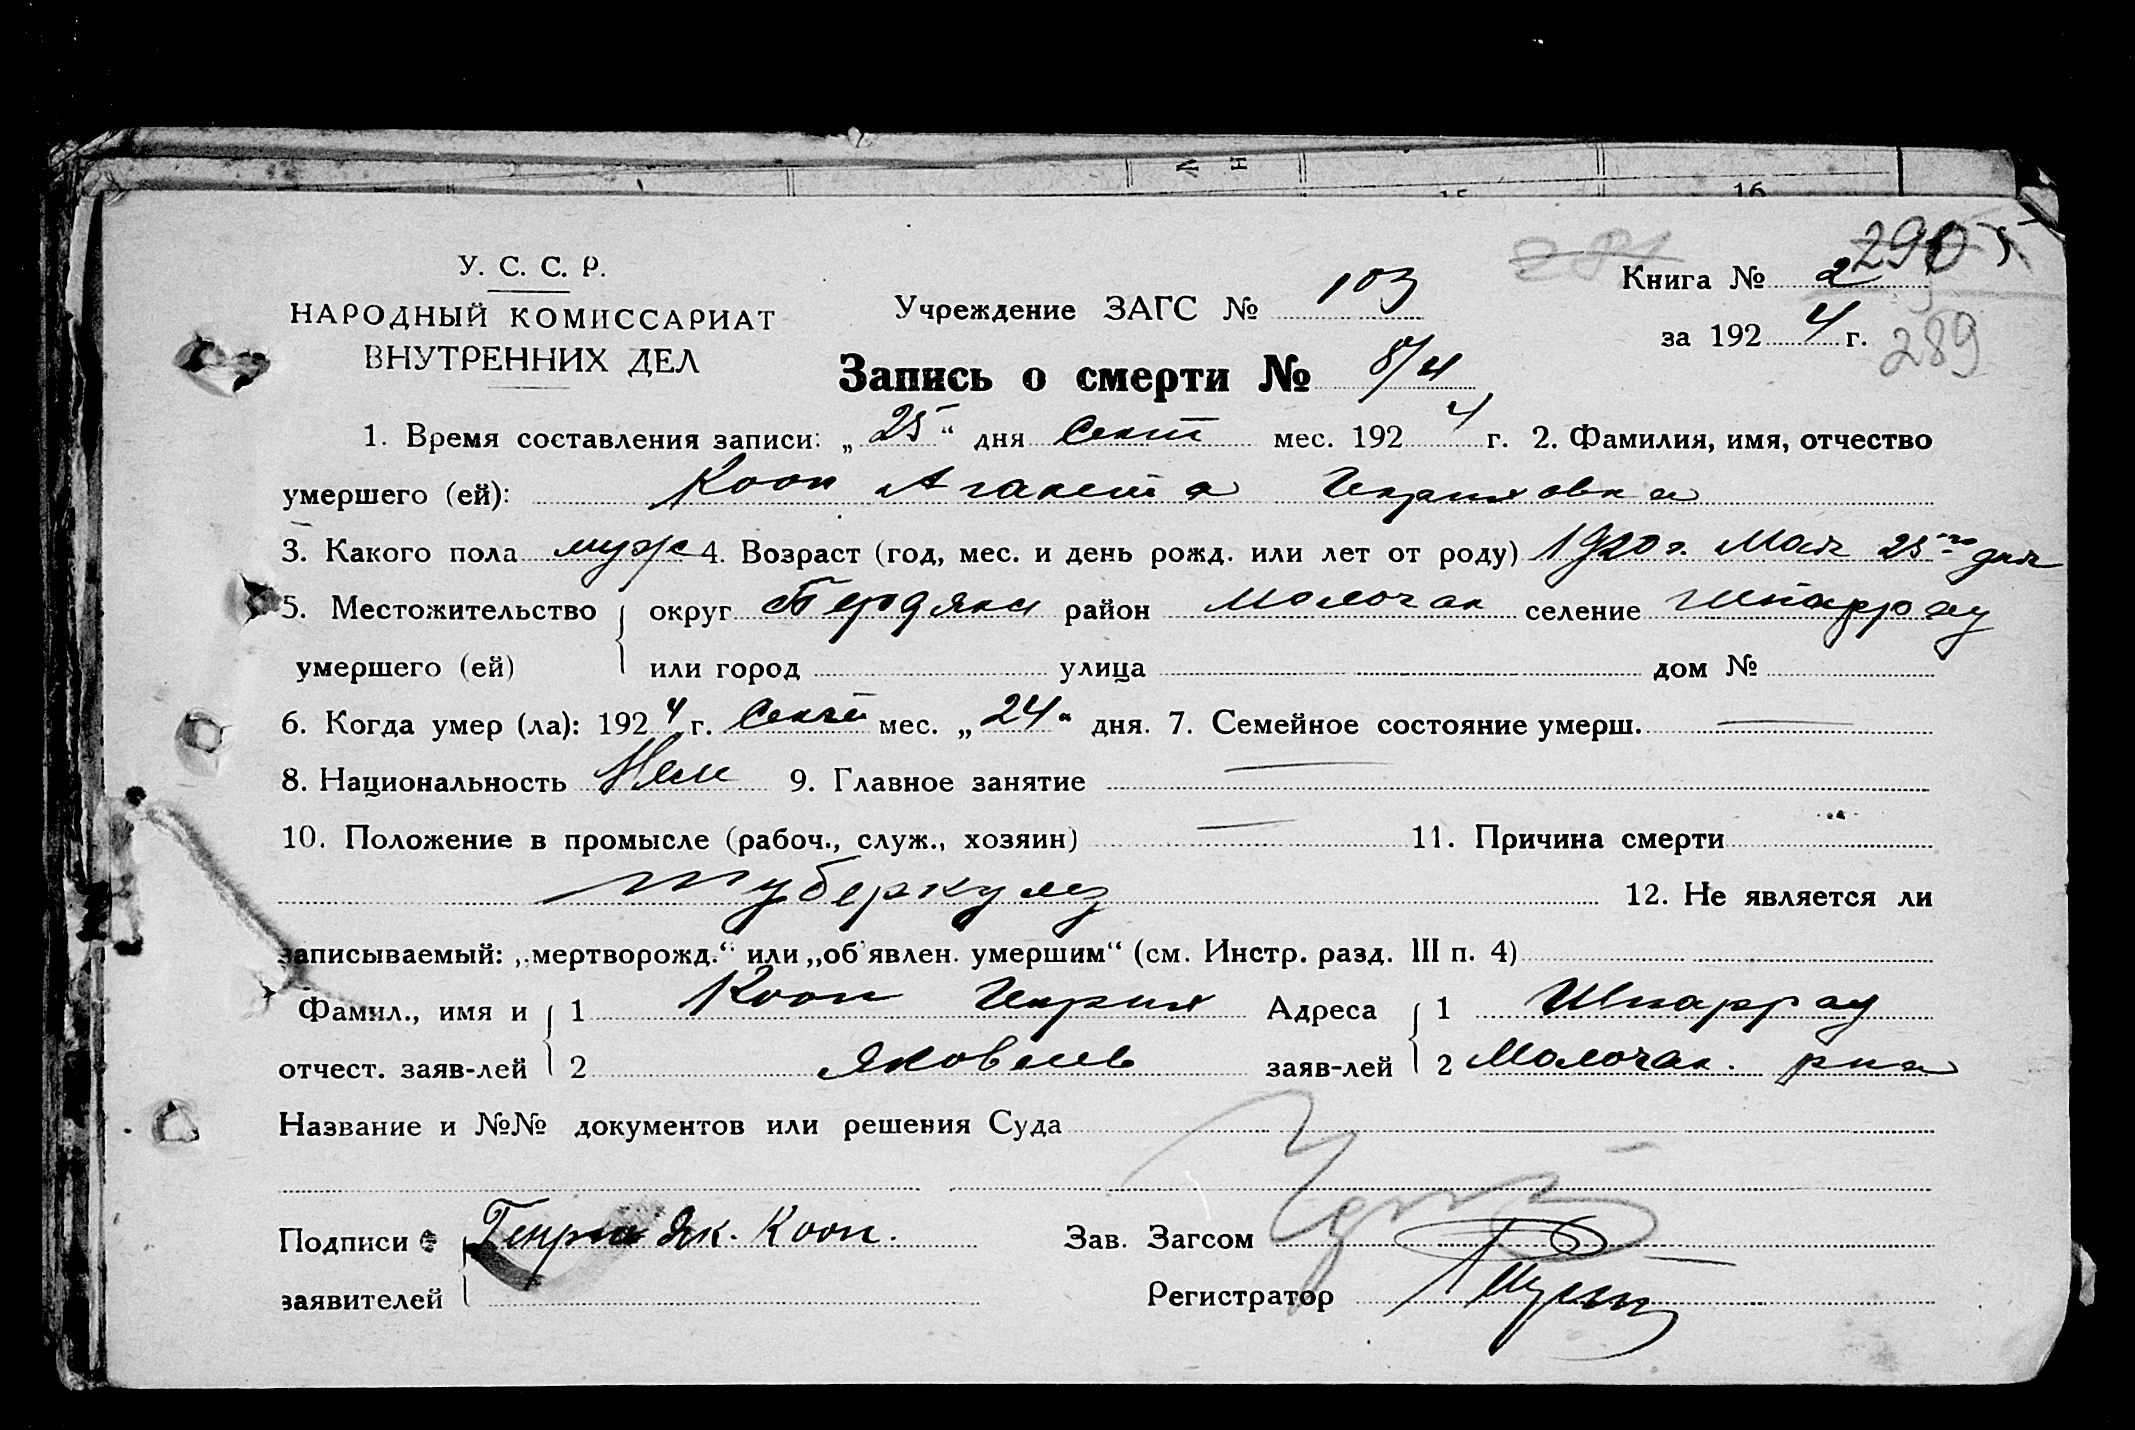 16
281
У. С. С. Р.
НАРОДНЫЙ КОМИССАРИАТ
ВНУТРЕННИХ ДЕЛ
Учреждение ЗАГС № 103
Книга № 2
за 1924 г.
289
Запись о смерти № 8/4
1. Время составления записи: „25“ дня Сент мес. 1924 г. 2. Фамилия, имя, отчество
умершего (ей): Кооп Аганета
3. Какого пола муж 4. Возраст (год, мес. и день рожд. или лет от роду) 1920 г. Мая 25го дня
5. Местожительство округ Бердянс район Молочан селение Шпаррау
умершего (ей) или город улица дом №
6. Когда умер (ла): 1924 г. Сент мес. „24“ дня. 7. Семейное состояние умерш.
8. Национальность Нем 9. Главное занятие
10. Положение в промысле (рабоч., служ., хозяин) 11. Причина смерти
туберкулез 12. Не является ли
записываемый: „мертворожд.“ или „об'явлен. умершим“ (см. Инстр. разд. III п. 4)
Фамил., имя и 1 Кооп Адреса 1 Шпаррау
отчест. заяв-лей 2 Яковлев заяв-лей 2 Молочан. рна
Название и №№ документов или решения Суда
Подписи Генрих Як. Кооп. Зав. Загсом
заявителей Регистратор